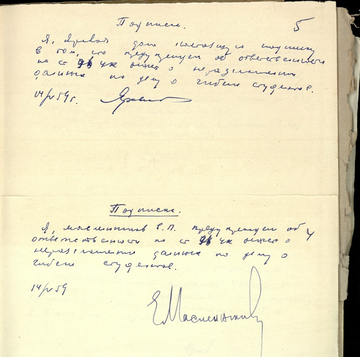 Подписка. 5
Я, Яровой даю настоящую подписку
в том, что предупрежден об ответственности
по ст 96 УК РСФСР о неразглашении
данных по делу о гибели студентов.
14/V 59 г.
Подписка.
Я, Масленников Е.П. предупрежден об
ответственности по ст 96 УК РСФСР о
неразглашении данных по делу о
гибели студентов.
14/V 59 ЕМасленников